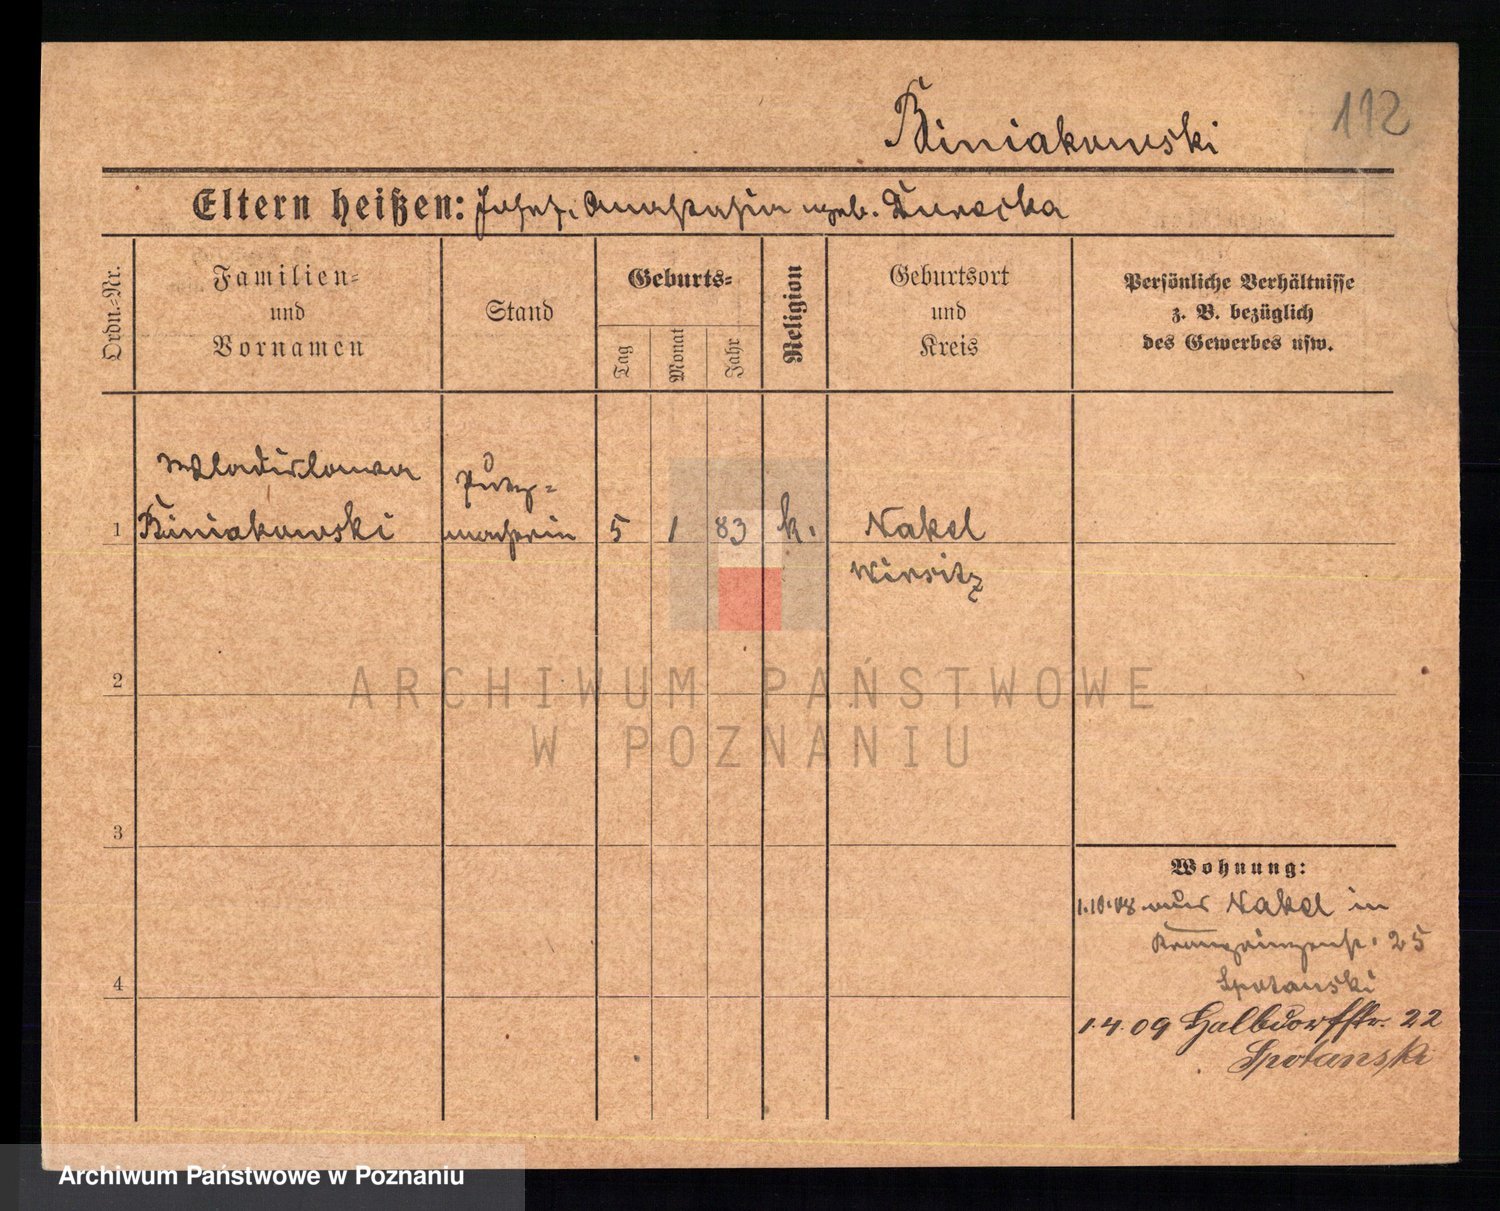 112
Biniakowski
Eltern heißen: Josef, Anastasia geb. Turecka
Ordn.-Nr.
Familien-
und
Vornamen
Stand
Geburts-
Tag
Monat
Jahr
Religion
Geburtsort
und
Kreis
Persönliche Verhältnisse
z. B. bezüglich
des Gewerbes usw.
Wladislawa
Biniakowski
Putz-
macherin
1
5
1
83
k.
Nakel
Wirsitz
2
ARCHIWUM PAŃSTWOWE
W POZNANIU
3
4
Wohnung:
1.10.08 aus Nakel in
Kronprinzenstr. 25
Spotanski
1.4.09 Halbdorfstr. 22
Spotanski
Archiwum Państwowe w Poznaniu